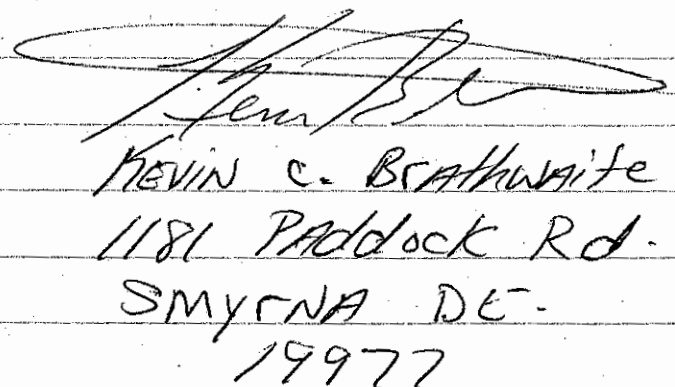 Kevin C. Brathwaite
1181 Paddock Rd.
Smyrna DE.
19977